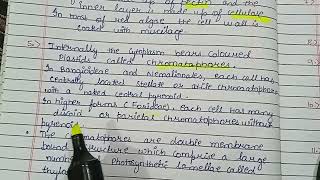 up of pectin and the
inner layer is made up of cellulose
In most of red algae the cell wall is
coated with mucilage.
5) Internally the cytoplasm bears coloured
Plastids called chromatophores.
In Bangioideae and Nemalionales, each cell has
centrally located stellate or
chromatophore
with a naked central pyrenoid.
In higher forms (Florideae), each cell has many
discoid or parietal chromatophores without
pyrenoid.
• The chromatophores are double membrane
bound structure which comprise a large
number photosynthetic lamellae called
thyla